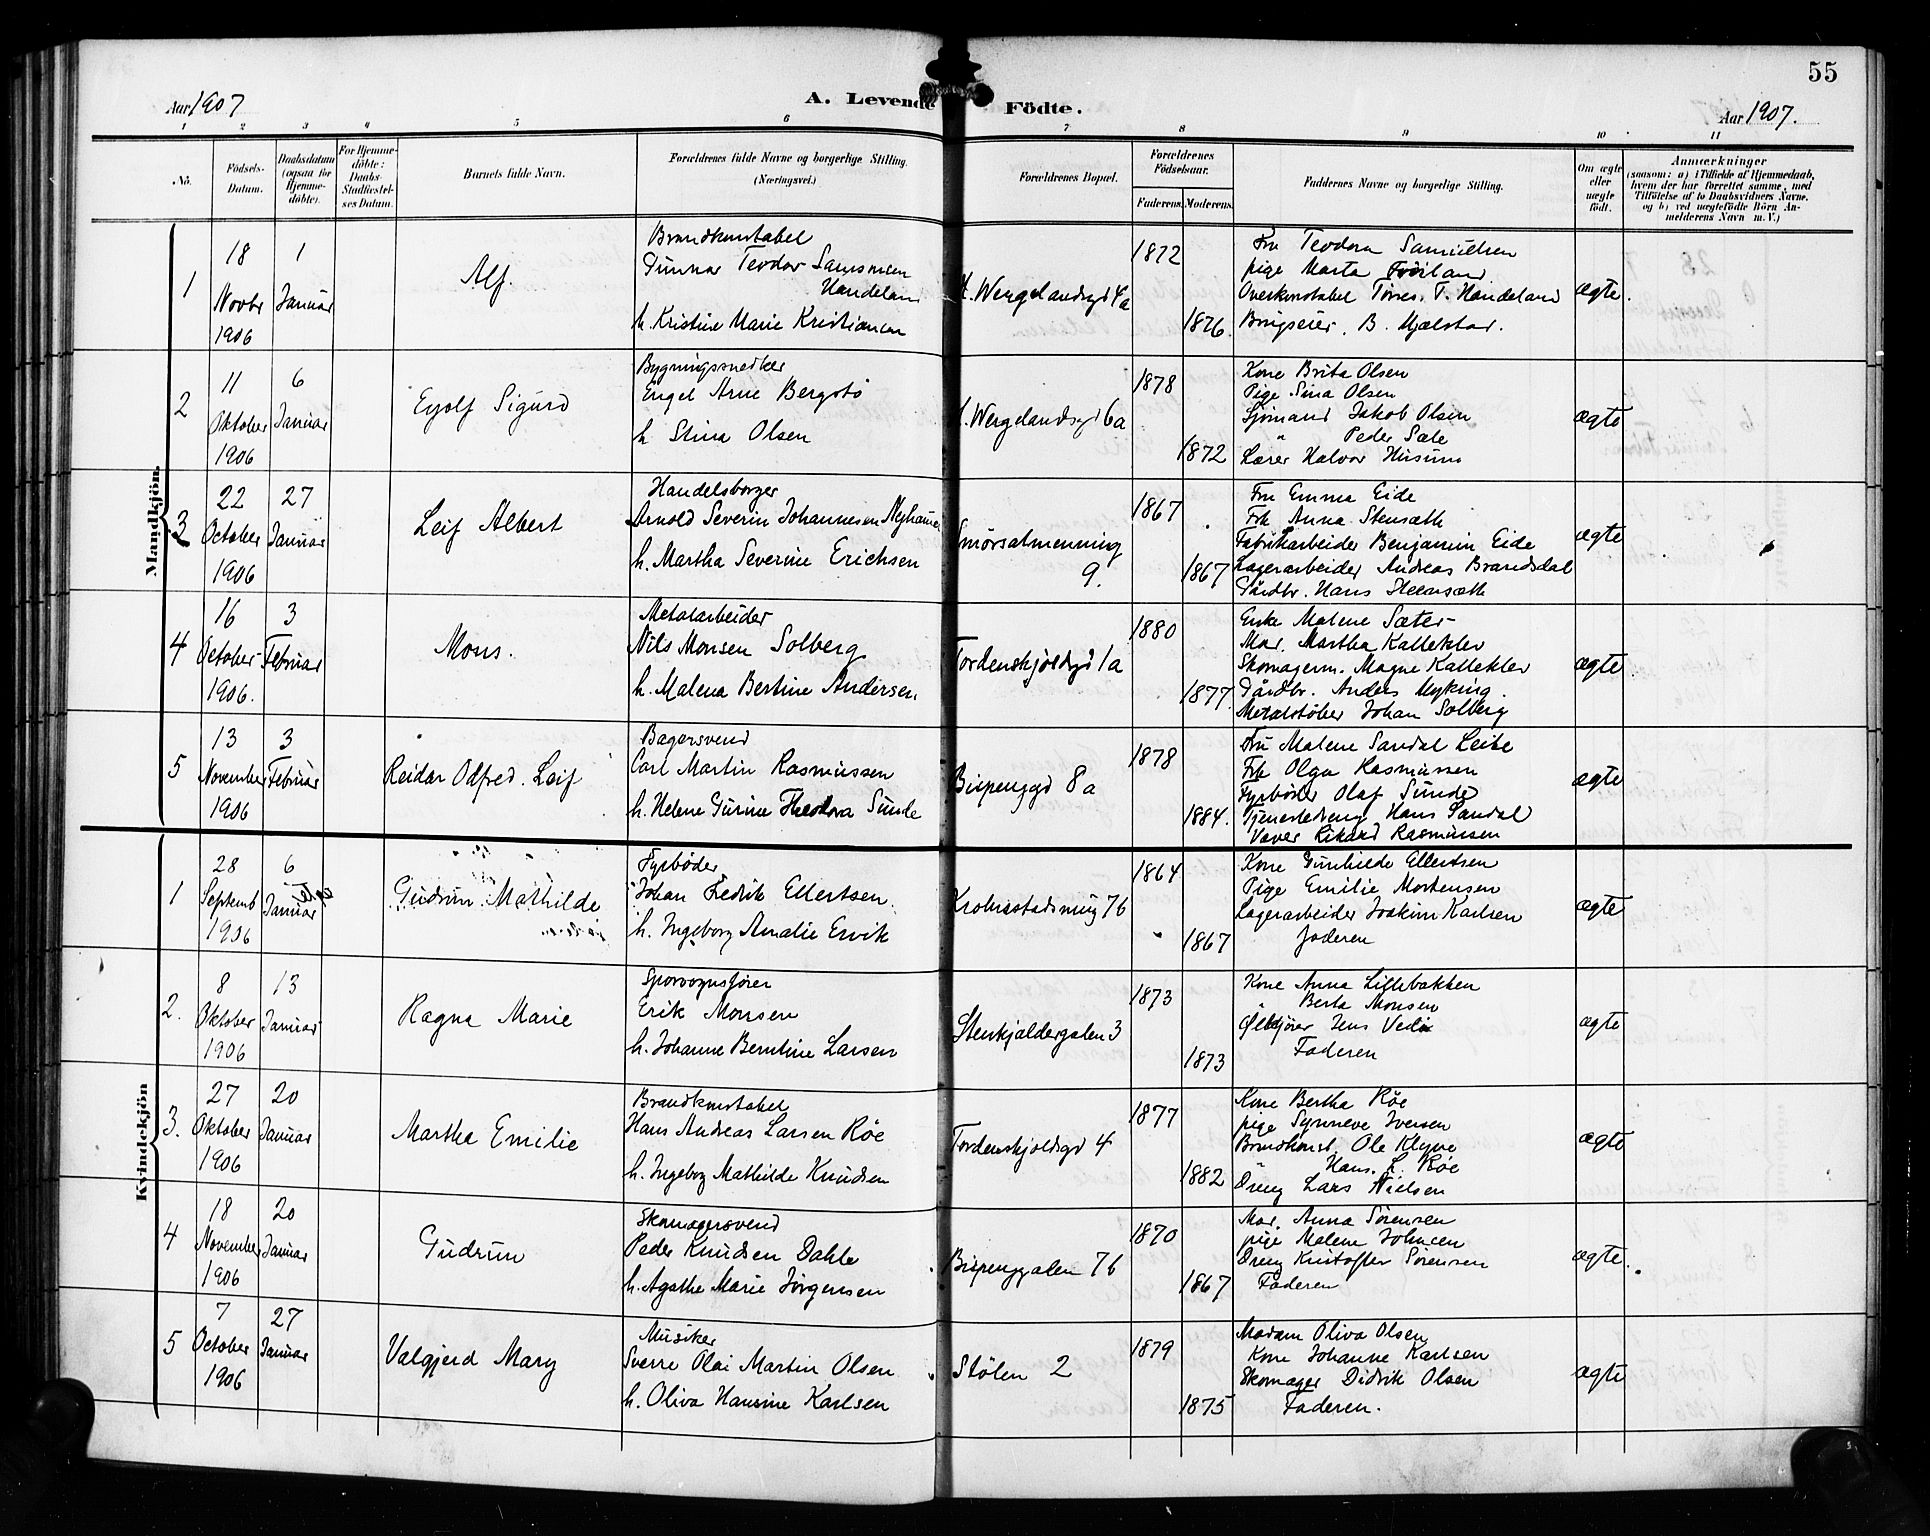 55
Aar 1907
A. Levende Födte.
Aar 1907.
1 2 3 4 5 6 7 8 9 10 11
No.
Födsels-Datum.
Daabsdatum (ogsaa for Hjemme-döbte).
For Hjemme-döbte: Daabs-Stadfæstel-ses Datum.
Barnets fulde Navn.
Forældrenes fulde Navne og borgerlige Stilling.
(Næringsvei.)
Forældrenes Bopæl.
Forældrenes Födselsaar.
Faderens.
Moderens.
Faddernes Navne og borgerlige Stilling.
Om ægte eller uægte födt.
Anmærkninger
(saasom: a) i Tilfælde af Hjemmedaab,
hvem der har forrettet samme, med
Tilföielse af to Daabsvidners Navne,
og b) ved uægtefödte Börn An-
melderens Navn m. V.)
Mandkjön
1
18 Novbr 1906
1 Januar
Alf.
Brandkonstabel
Gunnar Teodor Samsonsen
Handeland
h. Kristine Marie Kristiansen
H. Wergelandsgd 4a
1872
1876.
Fru Teodora Samuelsen
pige Marta Fröiland
Overkonstabel Tørres. T. Handeland
Brugseier. B. Mjelstad.
ægte.
2
11 Oktober 1906
6 Januar
Eyolf Sigurd
Bygningssnedker
Engel Arne Bergstö
h Stina Olsen
H. Wergelandsgd 6a
1878
1872
Kone Brita Olsen
Pige Sina Olsen
Sjömand Jakob Olsen
" Peder Sæle
Lærer Halvor Husum
ægte
3
22 October 1906
27 Januar
Leif Albert
Handelsborger
Arnold Severin Johannesen Nyhamer
h. Martha Severine Erichsen
Smörsalmenning
9.
1867
1867
Fru Emma Eide
Frk Anna Stensæth
Fabrikarbeider Benjamin Eide
Lagerarbeider Andreas Brandsdal
Gårdbr. Hans Stensæth
ægte
4
16 October 1906.
3 Februar
Mons.
Metalarbeider
Nils Monsen Solberg
h. Malena Bertine Andersen
Tordenskjoldsgd 1a
1880
1877.
Enke Malene Sæter
Mad. Martha Kallekler
Skomagerm. Magne Kallekler
Gårdbr. Anders Myking.
Metalstøber Johan Solberg
ægte.
5
13 November 1906
3 Februar
Reidar Odfred. Leif
Bagersvend
Carl Martin Rasmussen
h. Helene Gurine Theodora Sunde
Bispenggd 8a
1878
1884.
Fru Malene Sandal Leite
Frk Olga Rasmussen
Fyrböder Olaf Sunde
Tjenestedreng Hans Sandal
Væver Rikard Rasmussen
ægte
Kvindekjön
1
28 Septemb 1906
6 Januar
Gudrun Mathilde
Fyrbøder
Johan Fredrik Ellertsen.
h. Ingeborg Amalie Ervik
Krohnstadsmug 7b
1864
1867
Kone Gunhilde Ellertsen
Pige Emilie Mortensen
Lagerarbeider Joakim Karlsen
Faderen
ægte
2.
8 Oktober 1906
13 Januar
Ragna Marie
Sporvognsfører
Erik Monsen
h. Johanne Berntine Larsen
Stenkjældergalen 3
1873
1873
Kone Anna Lillebakken
" Berta Monsen
Ølkjører Jens Vedø
Faderen
ægte
3.
27 Oktober 1906
20 Januar
Martha Emilie
Brandkonstabel
Hans Andreas Larsen Røe
h. Ingeborg Mathilde Knudsen
Tordenskjoldsgd 4
1877
1882
Kone Bertha Røe
pige Synneve Iversen
Brandkonst. Ole Klyve
Hans. L. Røe
Dreng Lars Nielsen
ægte
4
18 November 1906
20 Januar
Gudrun
Skomagersvend
Peder Knudsen Dahle
h. Agathe Marie Jørgensen
Bispenggalen 7b
1870
1867
Mad. Anna Sørensen
pige Malene Johnsen
Dreng Kristoffer Sörensen
Faderen
ægte.
5
7 October 1906
27 Januar
Valgjerd Mary
Musiker
Sverre Olai Martin Olsen
h. Oliva Hansine Karlsen
Stølen 2
1879
1875
Madam Oliva Olsen
Kone Johanne Karlsen
Skomager Didrik Olsen
Faderen.
ægte